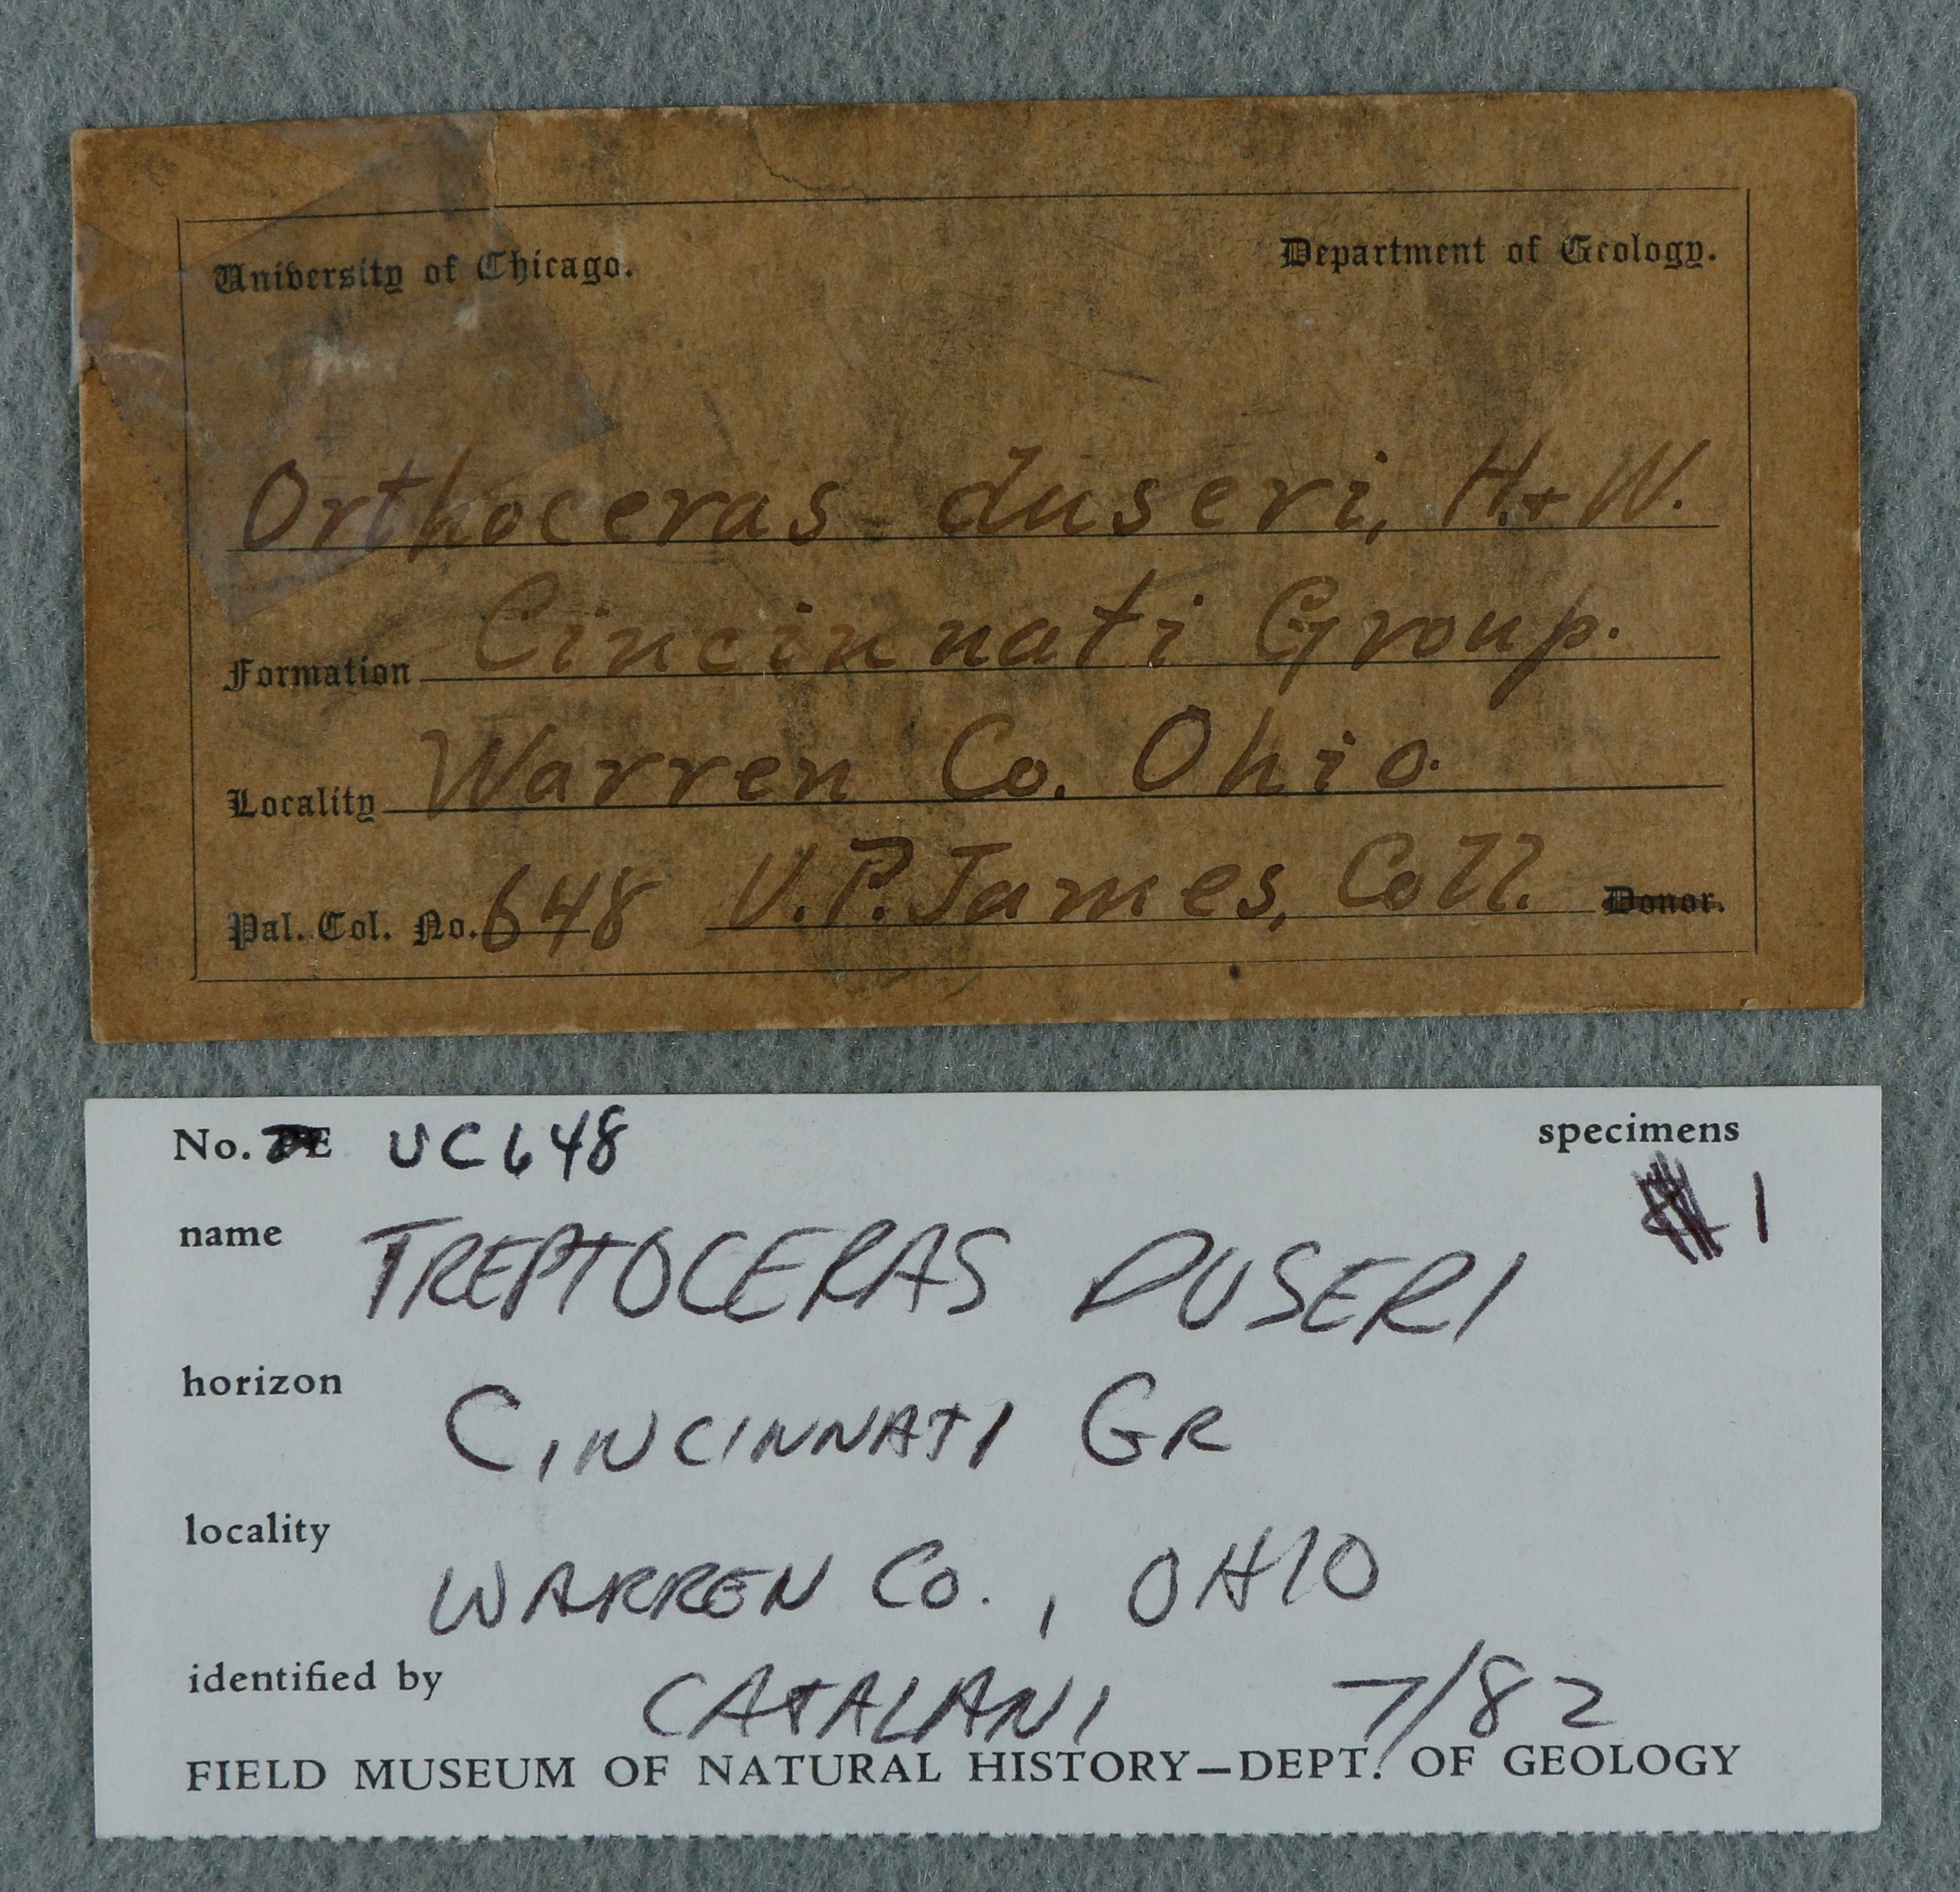 University of Chicago. Department of Geology.
Orthoceras duseri, H. & W.
Formation Cincinnati Group.
Locality Warren Co. Ohio.
Pal. Col. No. 648 U.P. James, Coll. Donor.
No. PE UC648 specimens
1
name TREPTOCERAS DUSERI
horizon CINCINNATI GR
locality WARREN CO., OHIO
identified by CATALANI 7/82
FIELD MUSEUM OF NATURAL HISTORY—DEPT. OF GEOLOGY